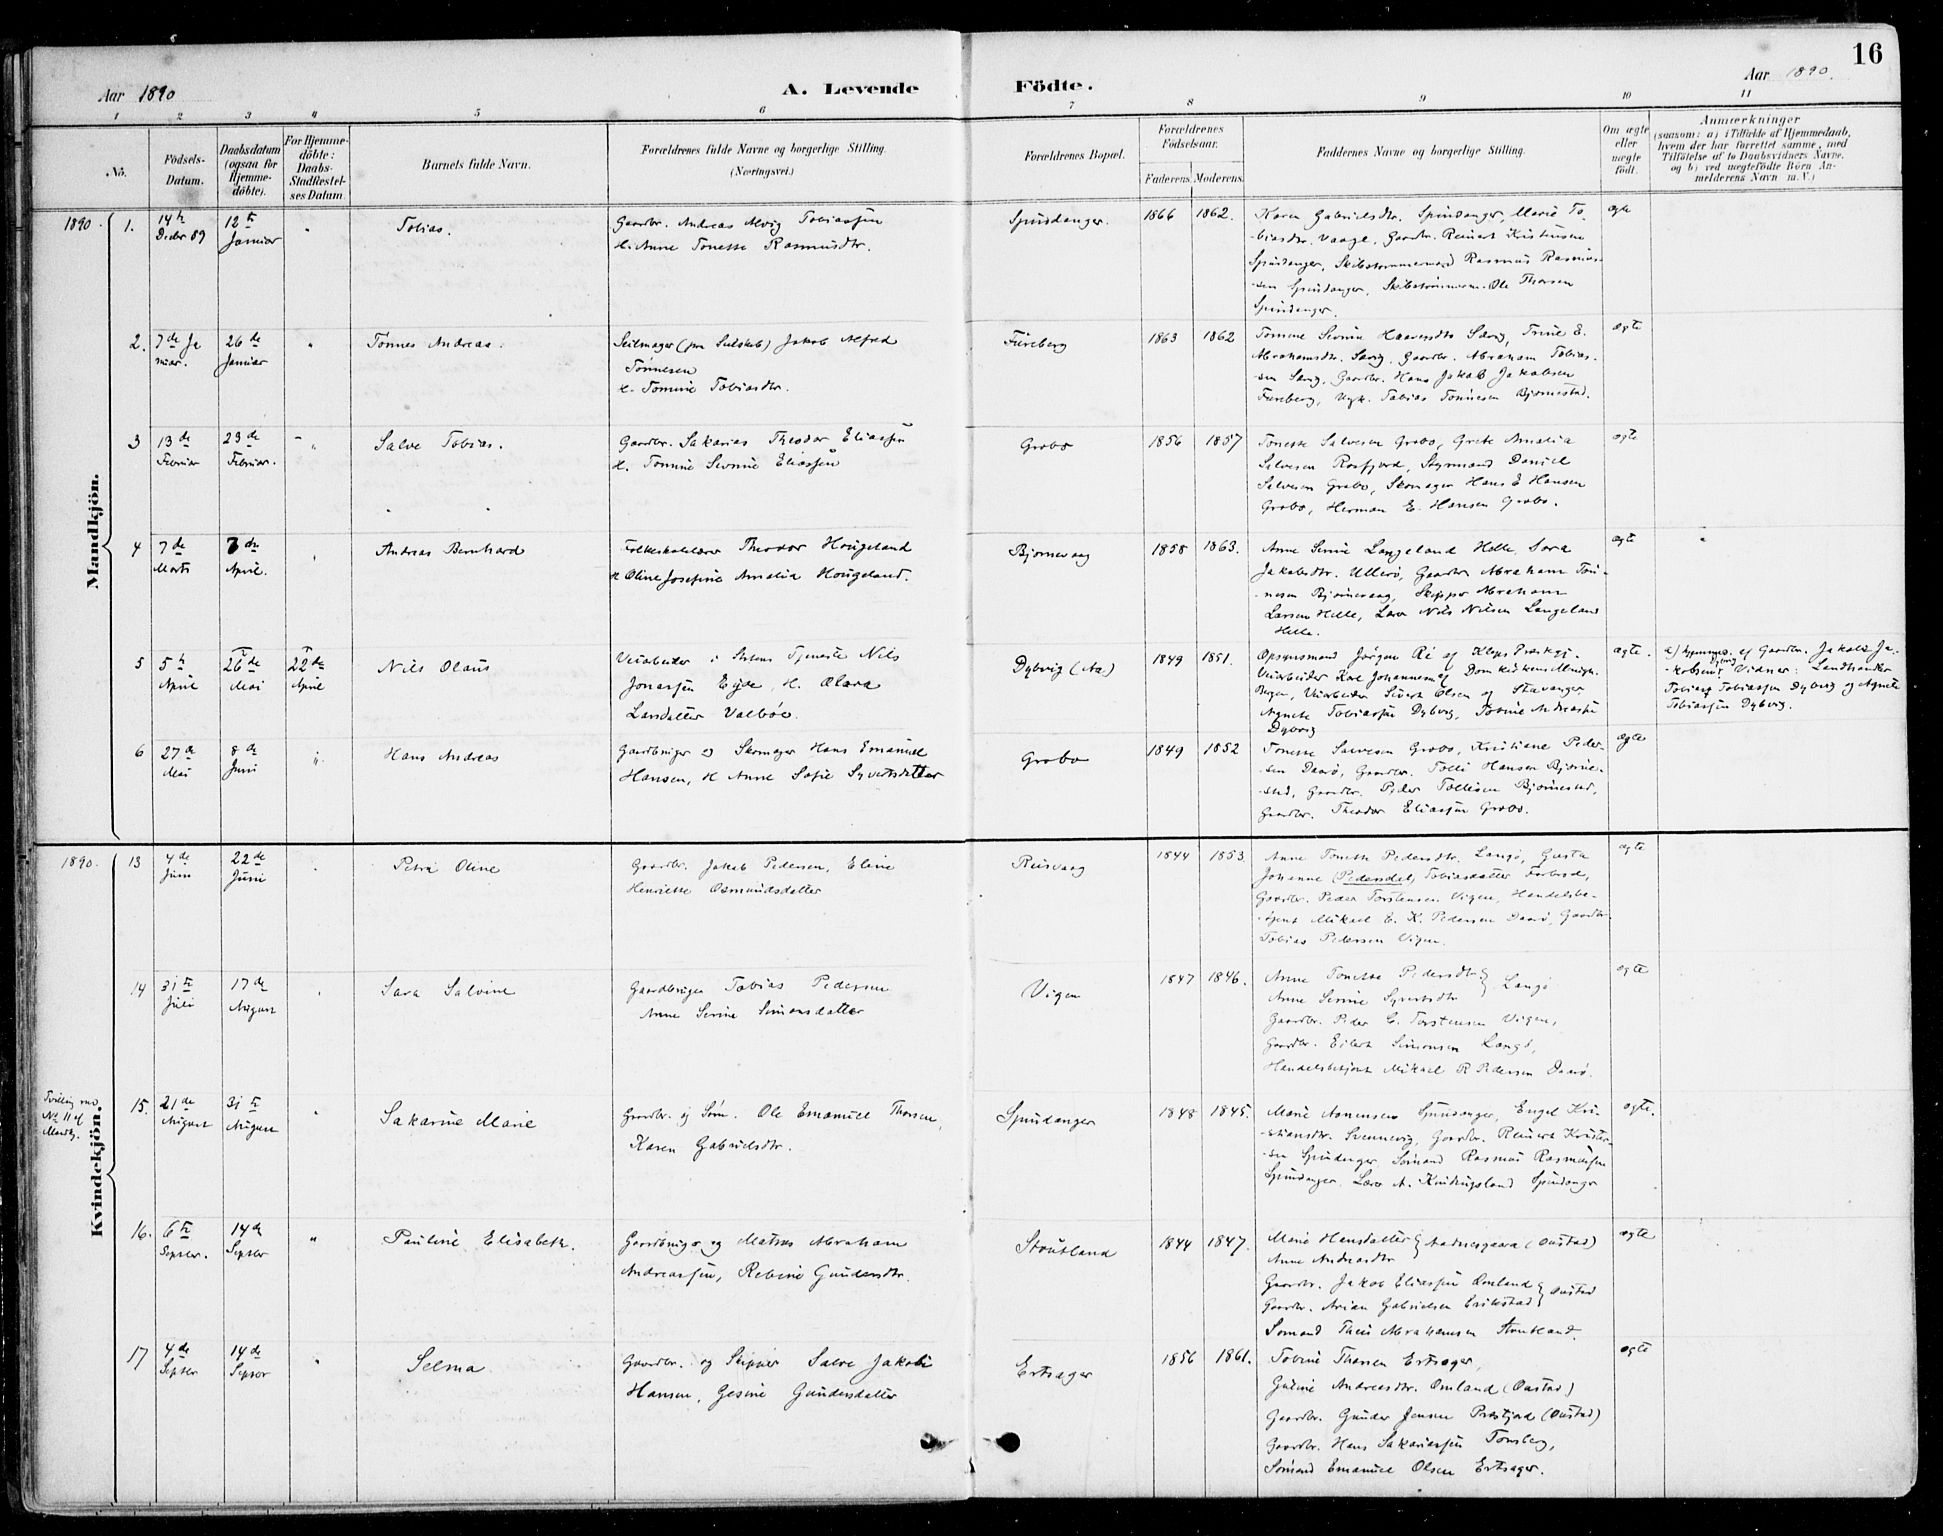 16
Aar 1890
A. Levende Födte.
Aar 1890.
1 2 3 4 5 6 7 8 9 10 11
No.
Födsels-
Datum.
Daabsdatum
(ogsaa for
Hjemme-
döbte).
For Hjemme-
döbte:
Daabs-
Stadfæstel-
ses Datum.
Barnets fulde Navn.
Forældrenes fulde Navne og borgerlige Stilling.
(Næringsvei.)
Forældrenes Bopæl.
Forældrenes
Födselsaar.
Faderens. Moderens.
Faddernes Navne og borgerlige Stilling.
Om ægte
eller
uægte
födt.
Anmærkninger
(saasom: a) i Tilfælde af Hjemmedaab,
hvem der har forrettet samme, med
Tilföielse af to Daabsvidners Navne,
og b) ved uægtefödte Börn An-
melderens Navn m. V.)
Mandkjön.
1890. 1.
14
Decbr 89
12
Januar
"
Tobias.
Gaardbr. Andreas Alvig Tobiassen
H. Anne Tonette Rasmusdtr.
Spindanger.
1866 1862.
Karen Gabrielsdtr. Spindanger, Marie To-
biasdtr. Vaage, Gaardbr. Reinert Kristensen
Spindanger, Skibstømmermand Rasmus Rasmus-
sen Spindanger, Skibstømmerm. Ole Thorsen
Spindanger.
ægte
2.
7de Ja
nuar.
26de
Januar
"
Tønnes Andreas.
Seilmager Jakob Alfred
Tønnesen
H. Tomine Tobiasdtr.
Fureberg
1863 1862
Tomine Severine Haaversdtr Særig, Trine E.
Abrahamsdtr. Særig, Gaardbr. Abraham Tobias-
sen Særig, Gaardbr. Hans Jakob Jakobsen
Fureberg, Ugk. Tobias Tønnesen Bjørnestad.
ægte
3
13de
Februar
23de
Februar.
"
Salve Tobias.
Gaardbr. Sakarias Theodor Eliassen
H. Tomine Severine Eliassen
Grobo
1856 1857
Tonette Salvesen Grobo, Grete Amalia
Salvesen Rosfjord, Styrmand Daniel
Salvesen Grobo, Skomager Hans E Hansen
Grobo, Herman E. Hansen Grobo.
ægte
4
7de
Marts
7de
April.
"
Andreas Bernhard
Folkeskolelærer Theodor Hougeland
H Oline Josefine Amalia Hougeland.
Bjørnevaag
1858 1863.
Anne Serine Langeland Helle, Sara
Jakobsdtr. Ullerø, Gaardbr Abraham Tøn-
nesen Bjørnevaag, Skipper Abraham
Larsen Helle, Lærer Nils Nilsen Langeland
Helle.
ægte
5
5
April
26de
Mai
22de
April
Nils Olaus
Veiarbeider i Statens Tjeneste Nils
Jonassen Eide, H. Olava
Larsdatter Valbøe.
Dybvig (Aa)
1849 1851.
Opsynsmand Jørgen Ri af Kleps Præstegj.
Veiarbeider Kore Johannesen af Domkirkens Menigh.
Bergen, Veiarbeider Sivert Olsen af Stavanger
Agnete Tobiassen Dybvig, Tomine Andreassen
Dybvig
ægte.
a) hjemmed. af Gaardbr. Jakob Ja-
kobsen Dybvig Vidner: Landhandler
Tobias Tobiassen Dybvig og Agnete
Tobiassen Dybvig.
6
27de
Mai
8de
Juni
"
Hans Andreas
Gaardbruger og Skomager Hans Emanuel
Hansen, H Anne Sofie Syvertsdatter
Grobo
1849 1852
Tonette Salvesen Grobo, Kristiane Peder-
sen Daarø, Gaardbr. Tolli Hansen Bjørne-
stad, Gaardbr. Peder Tollisen Bjørnestad,
Gaardbr. Theodor Eliassen Grobo.
ægte
Kvindekjön.
1890. 13
4de
Juni
22de
Juni
"
Petra Oline
Gaardbr. Jakob Pedersen, Eline
Henriette Osmundsdatter
Reisvaag
1844 1853.
Anne Tonette Pedersdtr. Langø, Gusta
Johanne (Pedersdat) Tobiasdatter Forbord,
Gaardbr. Peder Torstensen Vigen, Handelsbe-
tjent Mikael E. K. Pedersen Daarø, Gaardbr.
Tobias Pedersen Vigen.
ægte
14
31te
Juli
17de
August
"
Sara Salvine
Gaardbruger Tobias Pedersen
Anne Serine Simonsdatter
Vigen
1847 1846.
Anne Tonette Pedersdtr } Langø
Anne Serine Syvertsdtr
Gaardbr. Peder C. Torstensen Vigen,
Gaardbr. Eilert Simonsen Langø,
Handelsbetjent Mikael R Pedersen Daarø.
ægte
Tvilling med
No 11 af
Mandkj.
15.
21de
August
31te
August
"
Sakarine Marie
Gaardbr. og Søm. Ole Emanuel Thorsen,
Karen Gabrielsdtr.
Spindanger
1848 1845.
Marie Asmensen Spindanger, Engel Kri-
stiansdtr. Svennevig, Gaardbr. Reinert Kristen-
sen Spindanger Sømand Rasmus Rasmussen
Spindanger. Lærer A. Spindanger
ægte.
16.
6te
Septbr.
14de
Septbr
"
Pauline Elisabeth.
Gaardbruger og Matros Abraham
Andreassen, Rebine Gundersdtr.
Stoutland
1844 1847.
Marie Hansdatter } Aadnesgaard (Oustad)
Anne Andreasdtr
Gaardbr. Jakob Eliassen Omland } Oustad
Gaardbr. Arian Gabrielsen Erikstad
Sømand Theis Abrahamsen Stoutland.
ægte
17
4de
Septbr
14de
Septbr
"
Selma
Gaardbr. og Skipper Salve Jakob
Hansen, Gesine Gundersdatter
Ertsager
1856 1861.
Tobine Thorsen Ertsager,
Guline Andreasdtr. Omland (Oustad)
Gaardbr. Gunder Jensen Præstjord (Oustad)
Gaardbr. Hans Sakariassen Tomsberg,
Sømand Emanuel Olsen Ertsager.
ægte